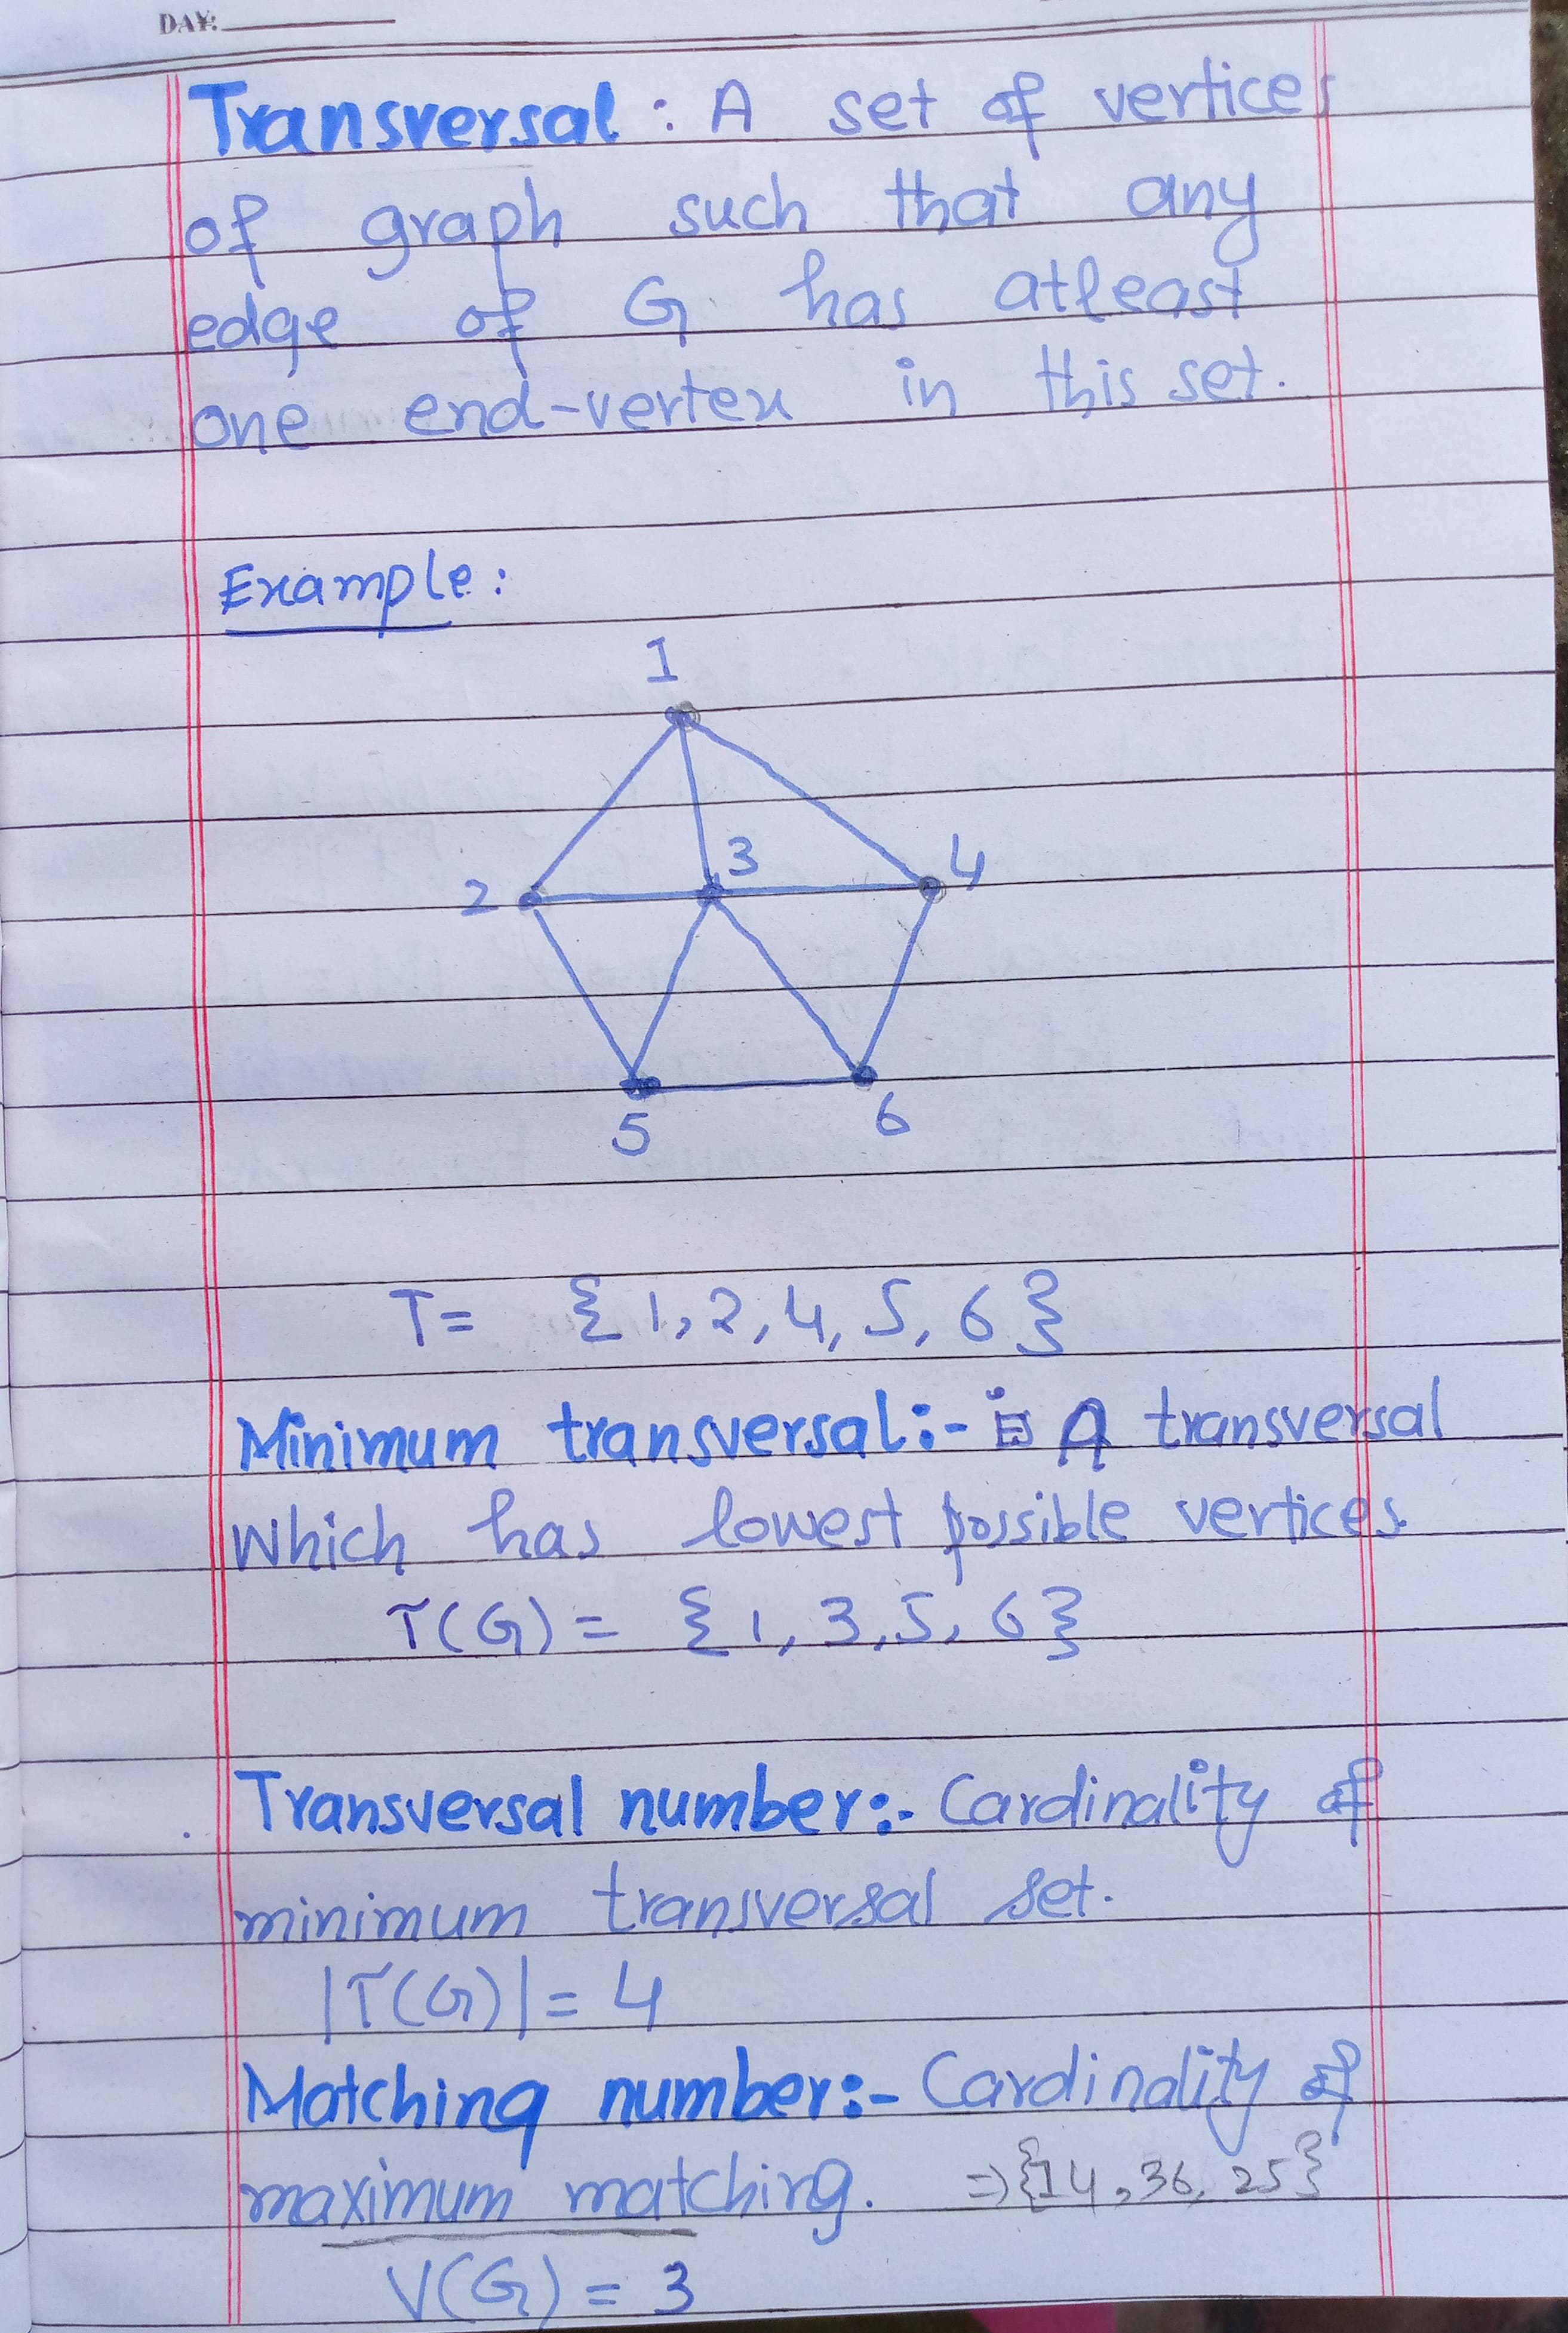 DAY:
Transversal : A set of vertices
of graph such that any
edge of G has atleast
one end-vertex in this set.
Example:
1
2 3 4
5 6
T= {1,2,4,5,6}
Minimum transversal:- A transversal
which has lowest possible vertices.
τ(G) = {1,3,5,6}
Transversal number:- Cardinality of
minimum transversal set.
|τ(G)| = 4
Matching number:- Cardinality of
maximum matching. ⇒{14,36,25}
V(G) = 3